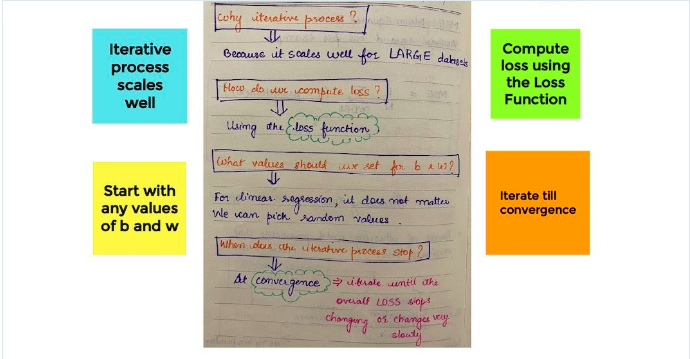 Iterative
process
scales
well
Start with
any values
of b and w
Why iterative process?
Because it scales well for LARGE datasets
How do we compute loss?
Using the loss function
What values should we set for b & w?
For linear regression, it does not matter
We can pick random values.
When does the iterative process stop?
At convergence ⇒ iterate until the
overall LOSS stops
changing or changes very
slowly
Compute
loss using
the Loss
Function
Iterate till
convergence